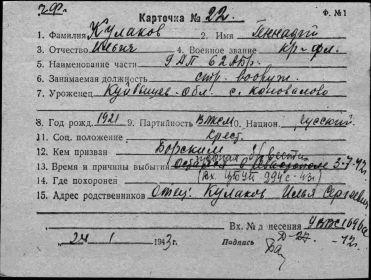 ч.ф.
Карточка № 22.
Ф. №1
1. Фамилия Кулаков 2. Имя Геннадий
3. Отчество Ильич 4. Военное звание кр-фл.
5. Наименование части 9 АП 62 АБр.
6. Занимаемая должность стр. вооруж.
7. Уроженец Куйбышев. Обл. с. Коновалово
8. Год рожд. 1921 9. Партийность ВЛКСМ 10. Национ. русский
11. Соц. положение крест.
12. Кем призван Борским
13. Время и причины выбытия 3-7-42г.
14. Где похоронен
15. Адрес родственников Отец: Кулаков Илья Сергеевич
Вх. № донесения
24 1 1943г. Подпись